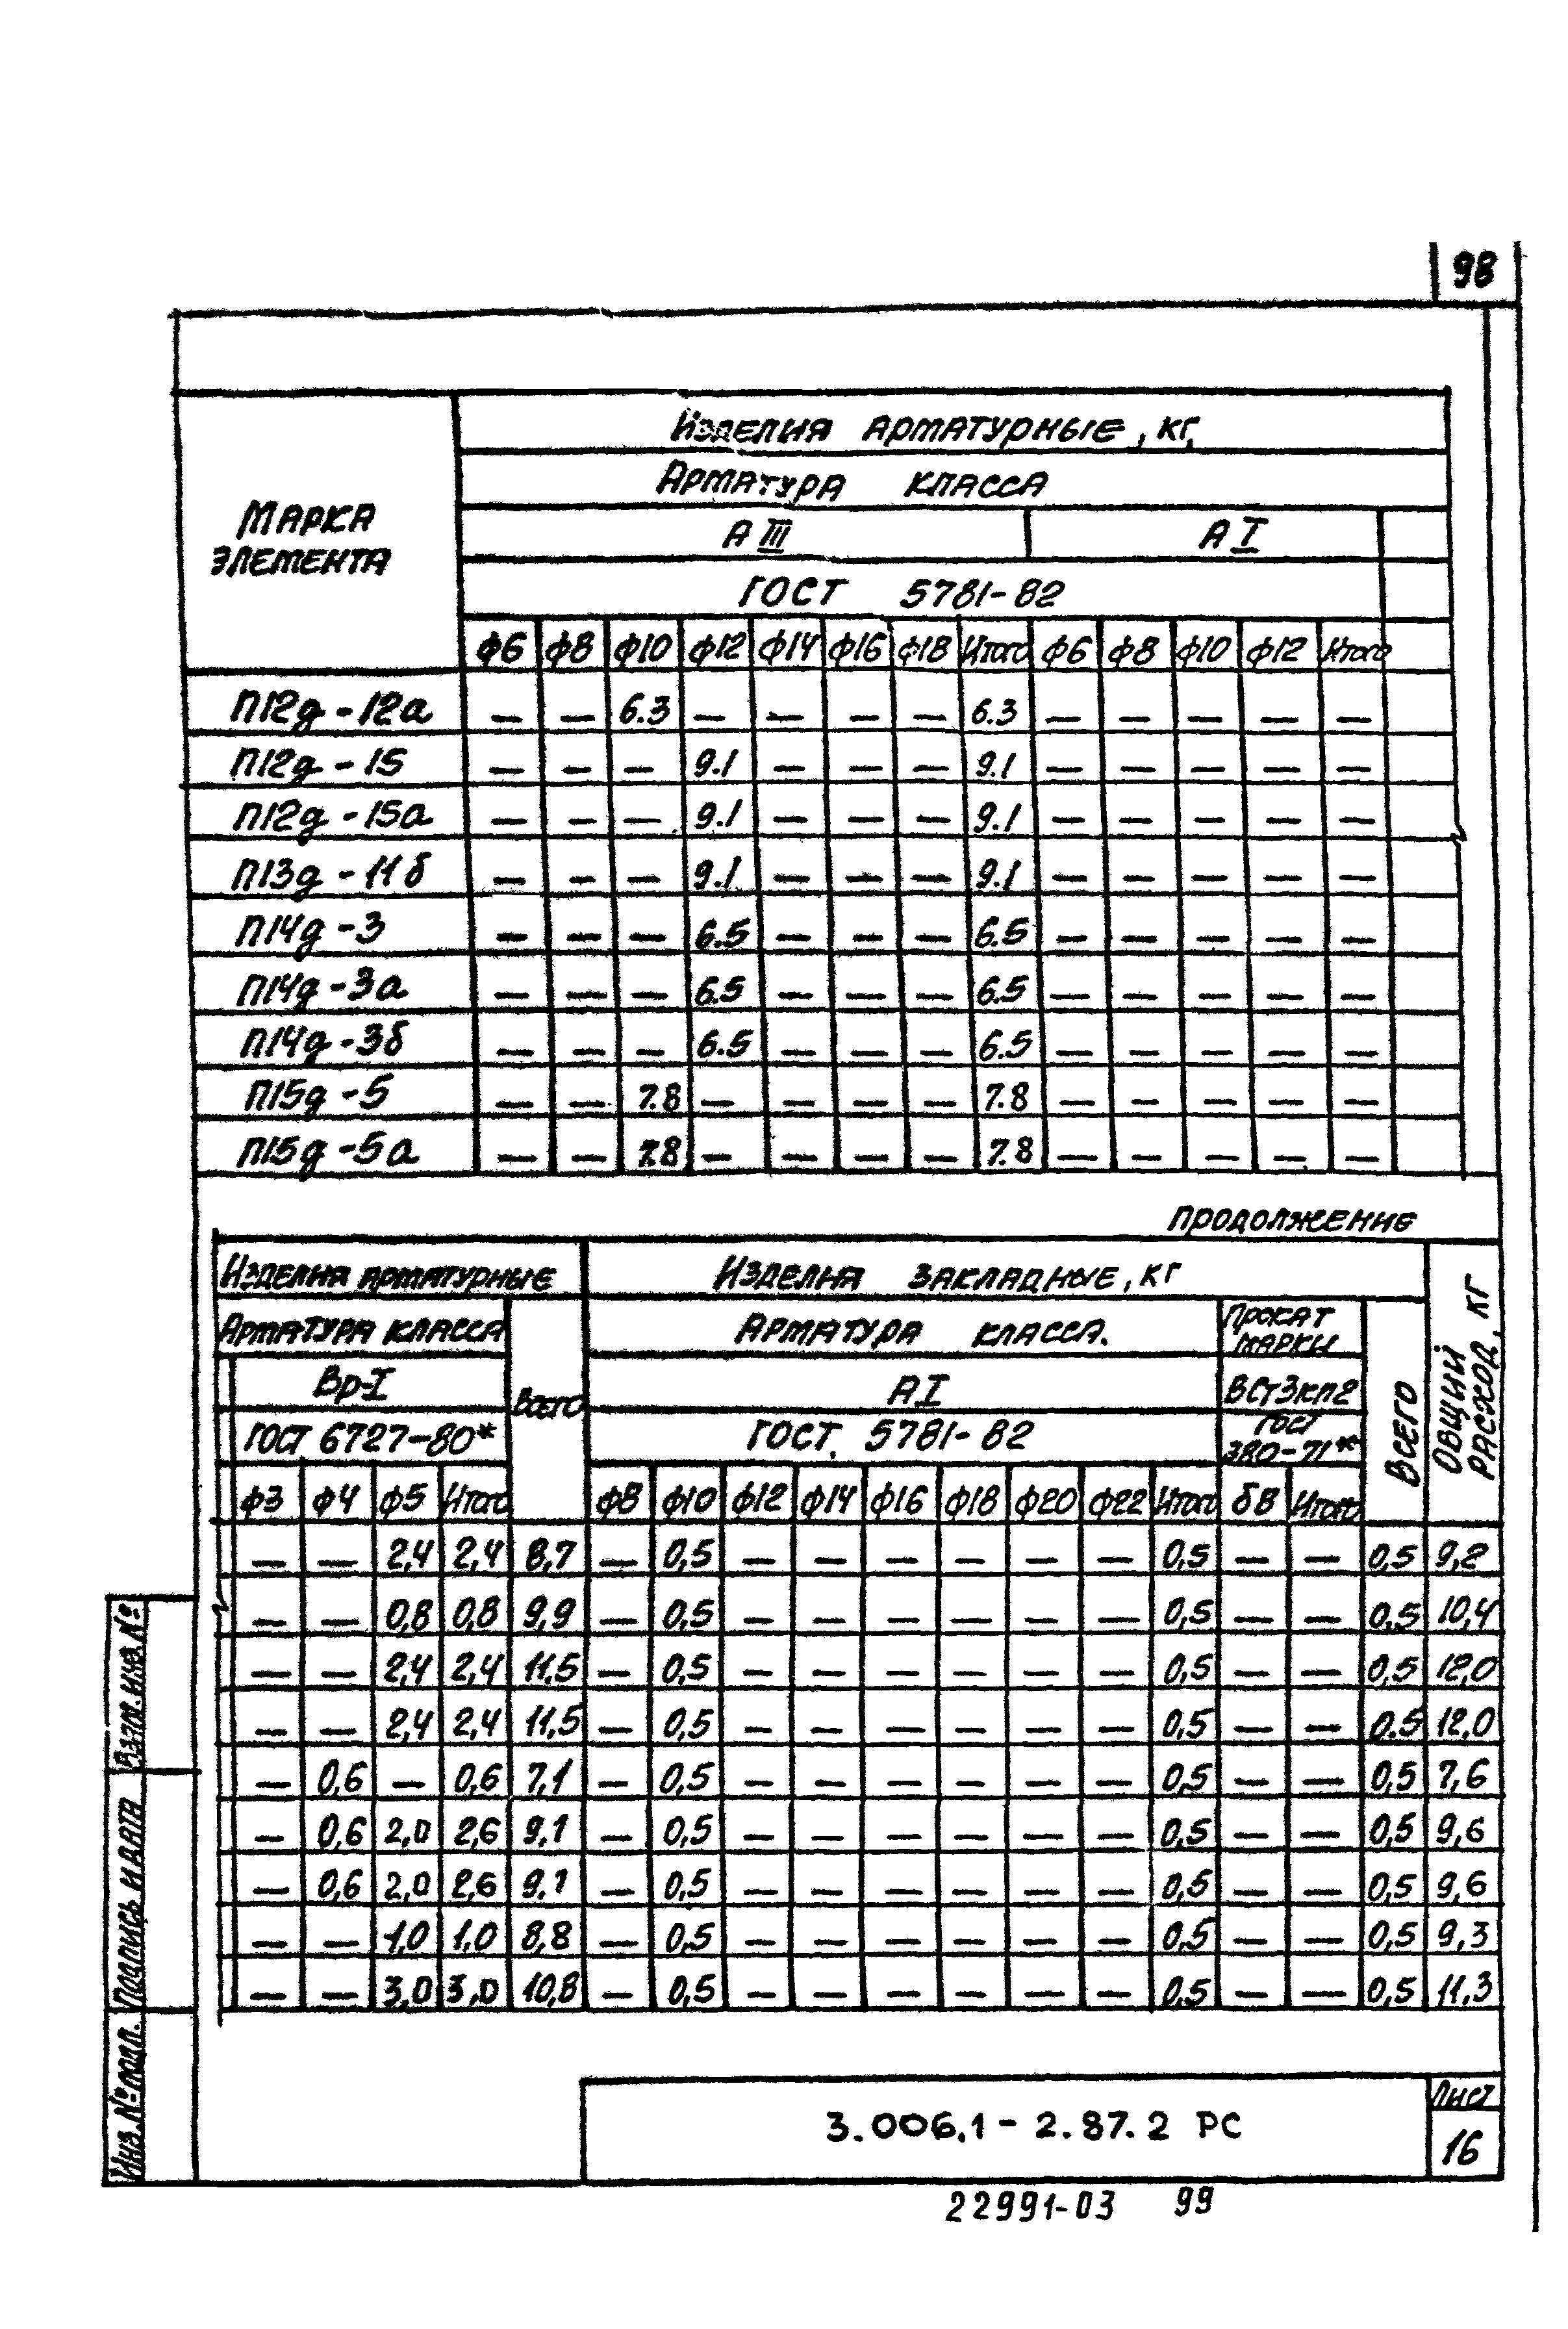 98
Изделия арматурные, кг
Арматура класса
Марка элемента
А III А I
ГОСТ 5781-82
ф6 ф8 ф10 ф12 ф14 ф16 ф18 Итого ф6 ф8 ф10 ф12 Итого
П12д-12а — — 6.3 — — — — 6.3 — — — — —
П12д-15 — — — 9.1 — — — 9.1 — — — — —
П12д-15а — — — 9.1 — — — 9.1 — — — — —
П13д-11б — — — 9.1 — — — 9.1 — — — — —
П14д-3 — — — 6.5 — — — 6.5 — — — — —
П14д-3а — — — 6.5 — — — 6.5 — — — — —
П14д-3б — — — 6.5 — — — 6.5 — — — — —
П15д-5 — — 7.8 — — — — 7.8 — — — — —
П15д-5а — — 7.8 — — — — 7.8 — — — — —
продолжение
Изделия арматурные Изделия закладные, кг Общий расход, кг
Арматура класса Всего Арматура класса. Прокат марки Всего
Вр-I А I ВСт3кп2
ГОСТ 6727-80* ГОСТ 5781-82 ГОСТ 380-71*
ф3 ф4 ф5 Итого ф8 ф10 ф12 ф14 ф16 ф18 ф20 ф22 Итого δ8 Итого
— — 2,4 2,4 8,7 — 0,5 — — — — — — 0,5 — — 0,5 9,2
— — 0,8 0,8 9,9 — 0,5 — — — — — — 0,5 — — 0,5 10,4
— — 2,4 2,4 11,5 — 0,5 — — — — — — 0,5 — — 0,5 12,0
— — 2,4 2,4 11,5 — 0,5 — — — — — — 0,5 — — 0.5 12,0
— 0,6 — 0,6 7,1 — 0,5 — — — — — — 0,5 — — 0,5 7,6
— 0,6 2,0 2,6 9,1 — 0,5 — — — — — — 0,5 — — 0,5 9,6
— 0,6 2,0 2,6 9,1 — 0,5 — — — — — — 0,5 — — 0,5 9,6
— — 1,0 1,0 8,8 — 0,5 — — — — — — 0,5 — — 0,5 9,3
— — 3,0 3,0 10,8 — 0,5 — — — — — — 0,5 — — 0,5 11,3
Взам. инв. №
Подпись и дата
Инв. № подл.
3.006.1-2.87.2 РС
Лист
16
22991-03 99